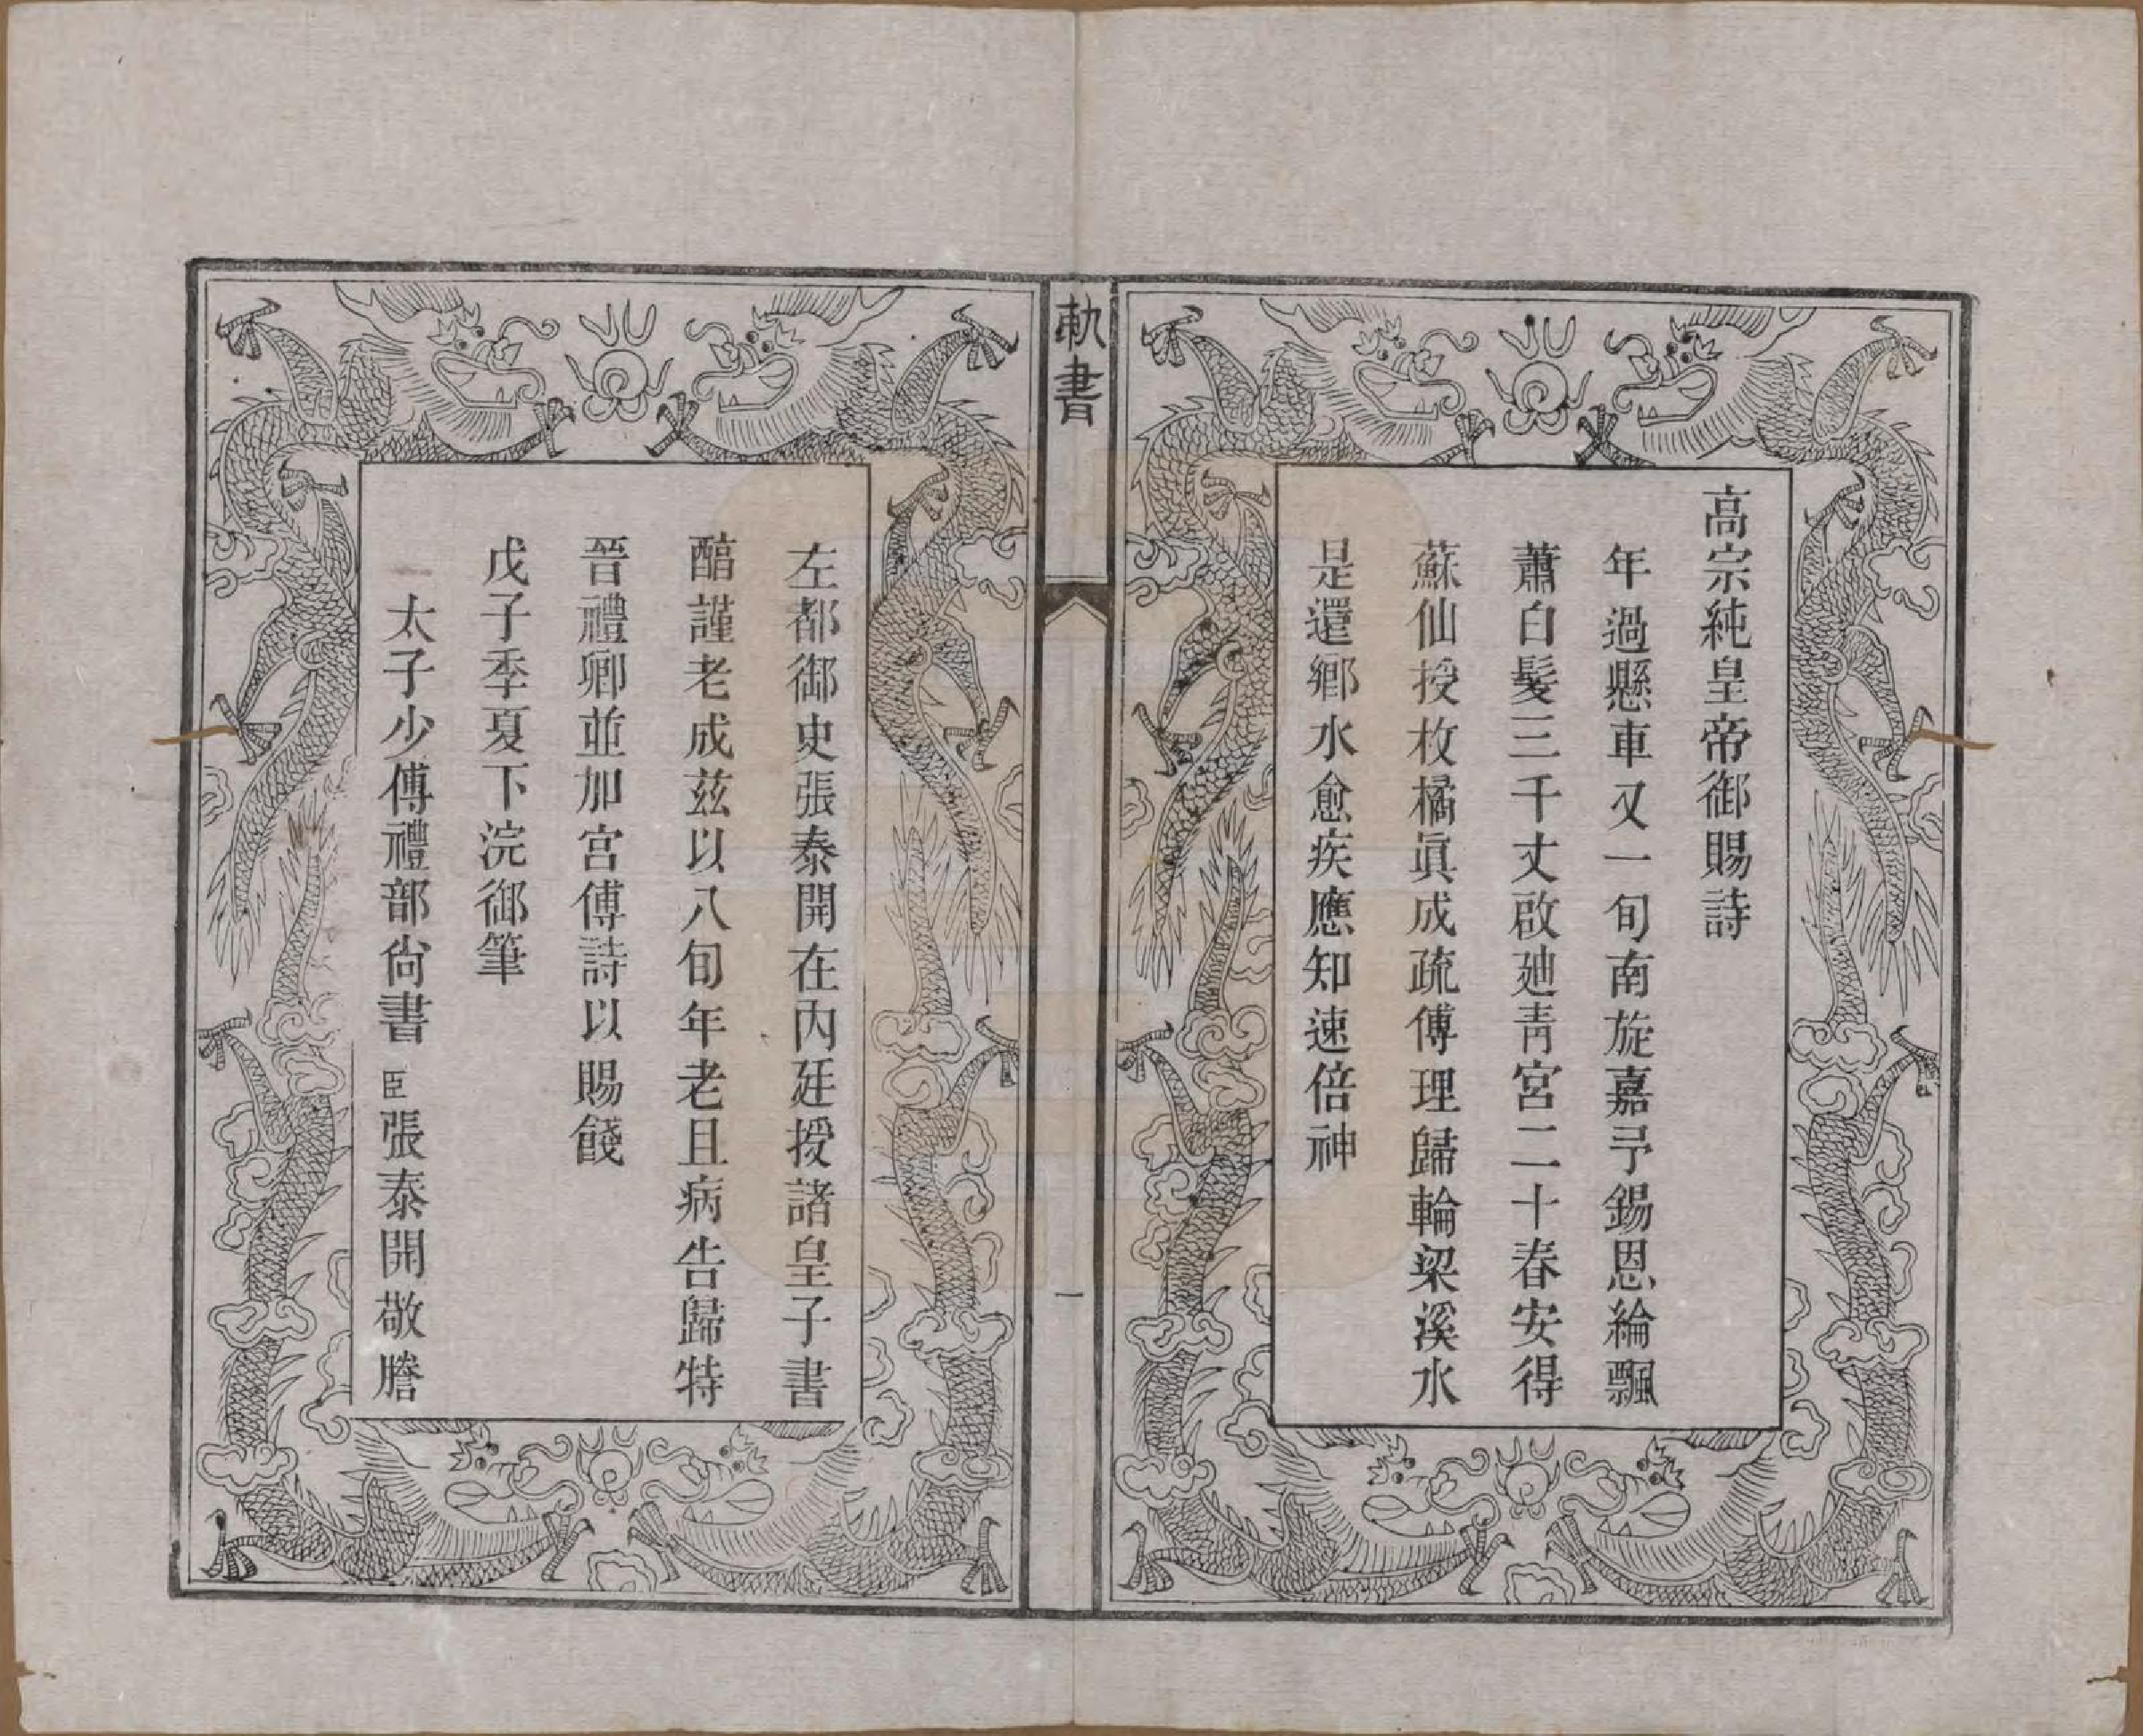 高宗純皇帝御賜詩
年過懸車又一旬南旋嘉予錫恩綸飄
蕭白髮三千丈啟廸靑宮二十春安得
蘇仙授枚橘眞成疏傅理歸輪梁溪水
是還鄉水愈疾應知速倍神
勅書
一
左都御史張泰開在內廷授諸皇子書
醇謹老成茲以八旬年老且病告歸特
晉禮卿並加宮傅詩以賜餞
戊子季夏下浣御筆
太子少傅禮部尙書臣張泰開敬謄